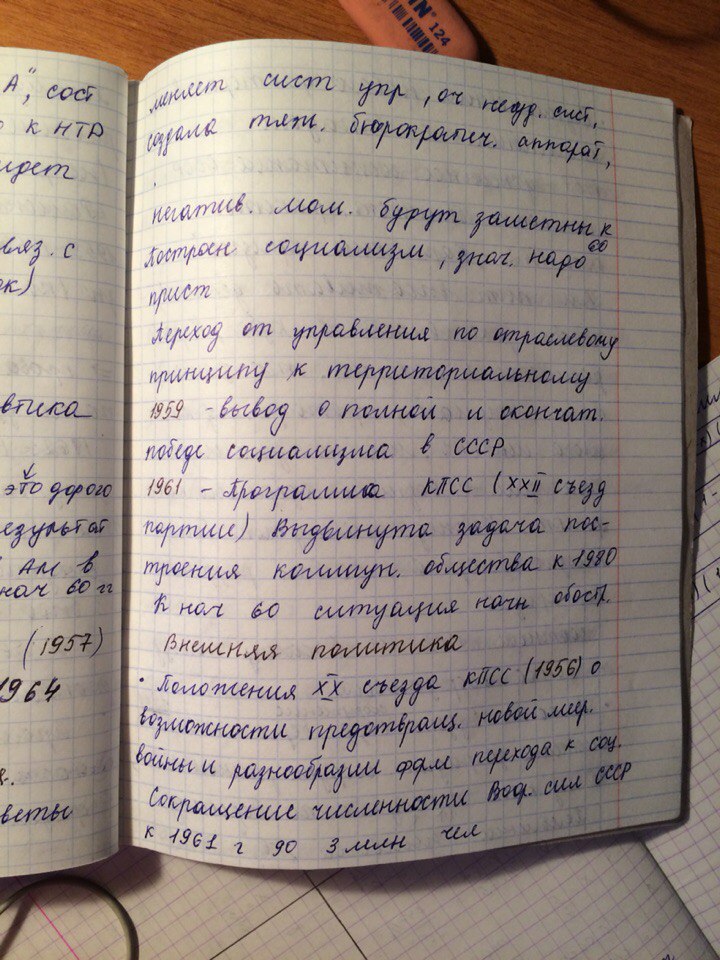 124
А", сост
к НТР
идет
вяз. с
ок)
литика
это дорого
результат
Ам в
нач 60 гг
(1957)
1964
веты
меняет сист упр, оч неуд. сист,
создала тяж. бюрократич. аппарат,
негатив. мом. будут заметны к
60
Построен социализм, знач. надо
прист
Переход от управления по отраслевому
принципу к территориальному
1959 - вывод о полной и окончат.
победе социализма в СССР
1961 - Программа КПСС (XXII съезд
партии) Выдвинута задача пос-
троения коммун. общества к 1980
К нач 60 ситуация начн обостр.
Внешняя политика
• Положения XX съезда КПСС (1956) о
возможности предотвращ. новой мир.
войны и разнообразии форм перехода к соц.
Сокращение численности Воор. сил СССР
к 1961 г до 3 млн чел